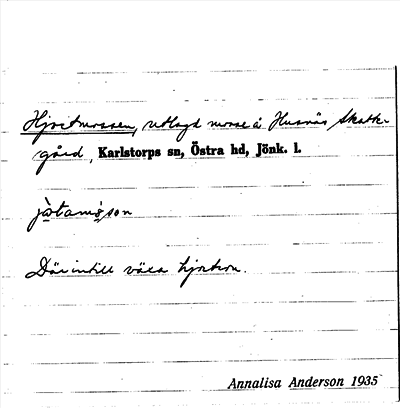 Hjortmossen, utlagd mosse å Husnäs skatte-
gård, Karlstorps sn, Östra hd, Jönk. l.
Därintill växa hjortron.
Annalisa Anderson 1935